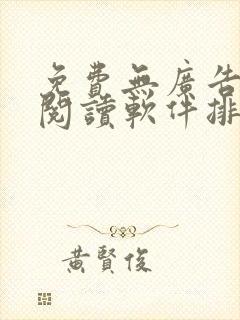 免費無廣告
閱讀軟件排
黃賢俊